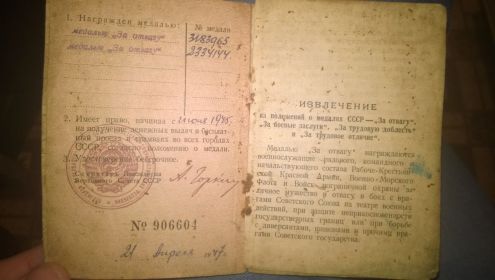 1. Награжден медалью: № медали
медалью „За отвагу" 3183965
медалью „За отвагу" 2334144
2. Имеет право, начиная с июня 1945
на получение денежных выдач и бесплат-
ный проезд в трамваях во всех городах
СССР, согласно положению о медали.
3. Удостоверение бессрочное.
Секретарь Президиума
Верховного Совета СССР А. Горкин
№ 906604
21 апреля 1947.
ИЗВЛЕЧЕНИЕ
из положений о медалях СССР — „За отвагу",
„За боевые заслуги", „За трудовую доблесть"
и „За трудовое отличие"
Медалью „За отвагу" награждаются
военнослужащие рядового, командного и
начальствующего состава Рабоче-Крестьян-
ской Красной Армии, Военно-Морского
Флота и Войск пограничной охраны за личное
мужество и отвагу в боях с врагами
Советского Союза на театре военных
действий, при защите неприкосновенности
государственных границ или при борьбе
с диверсантами, шпионами и прочими врагами
Советского государства.